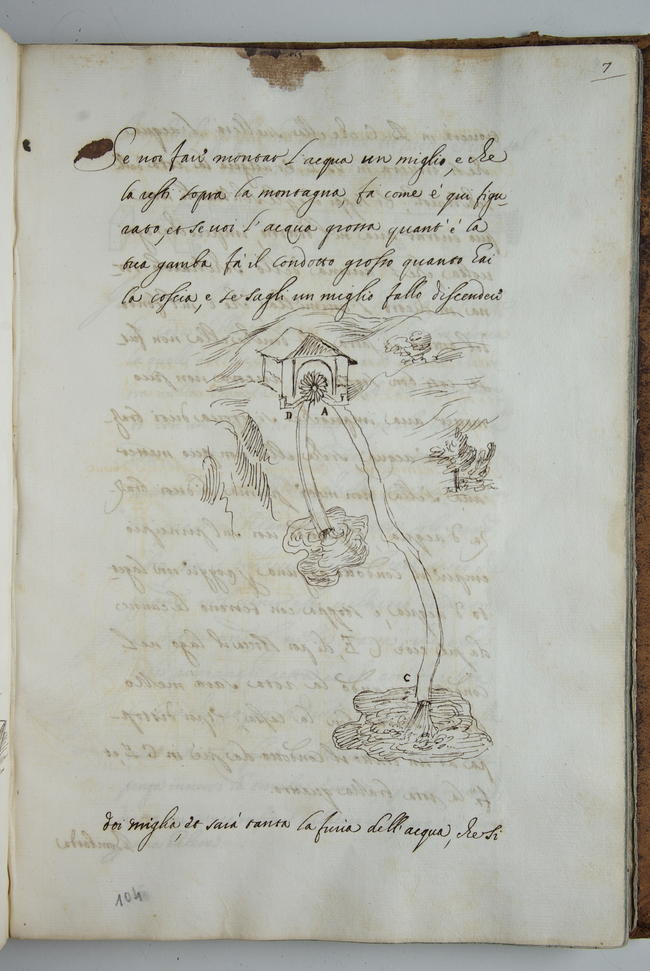 7
Se uoi far montar l'acqua un miglio, e che
la resti sopra la montagna, fa come è qui figu-
rato, et se uoi l'acqua grossa quant' è la
tua gamba fà il condotto grosso quanto hai
la coscia, e se sagli un miglio fallo discender
D A
C
doi miglia, et sarà tanta la furia dell'acqua, che si
104